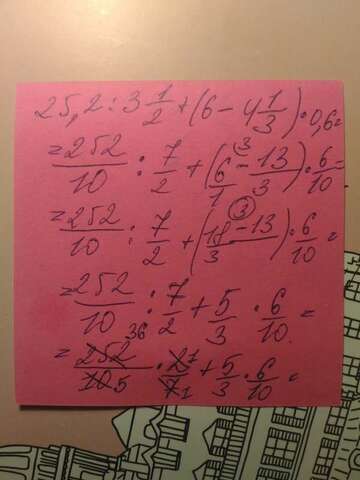 25,2 : 3 1/2 + (6 - 4 1/3) · 0,6 =
= 252/10 : 7/2 + (6/1 - 13/3) · 6/10 =
= 252/10 : 7/2 + (18 - 13/3) · 6/10 =
= 252/10 : 7/2 + 5/3 · 6/10 =
= 252/10 · 2/7 + 5/3 · 6/10 =